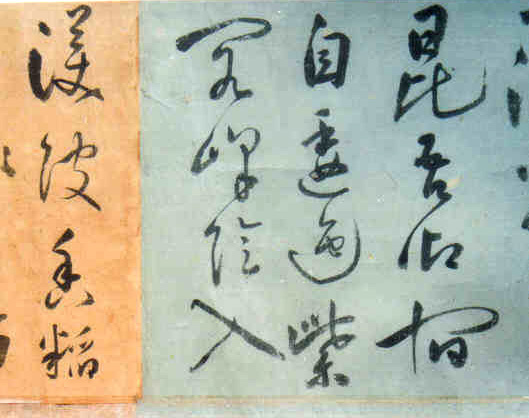 昆吾御宿
自逶迤紫
閣峰陰入
渼陂香稻